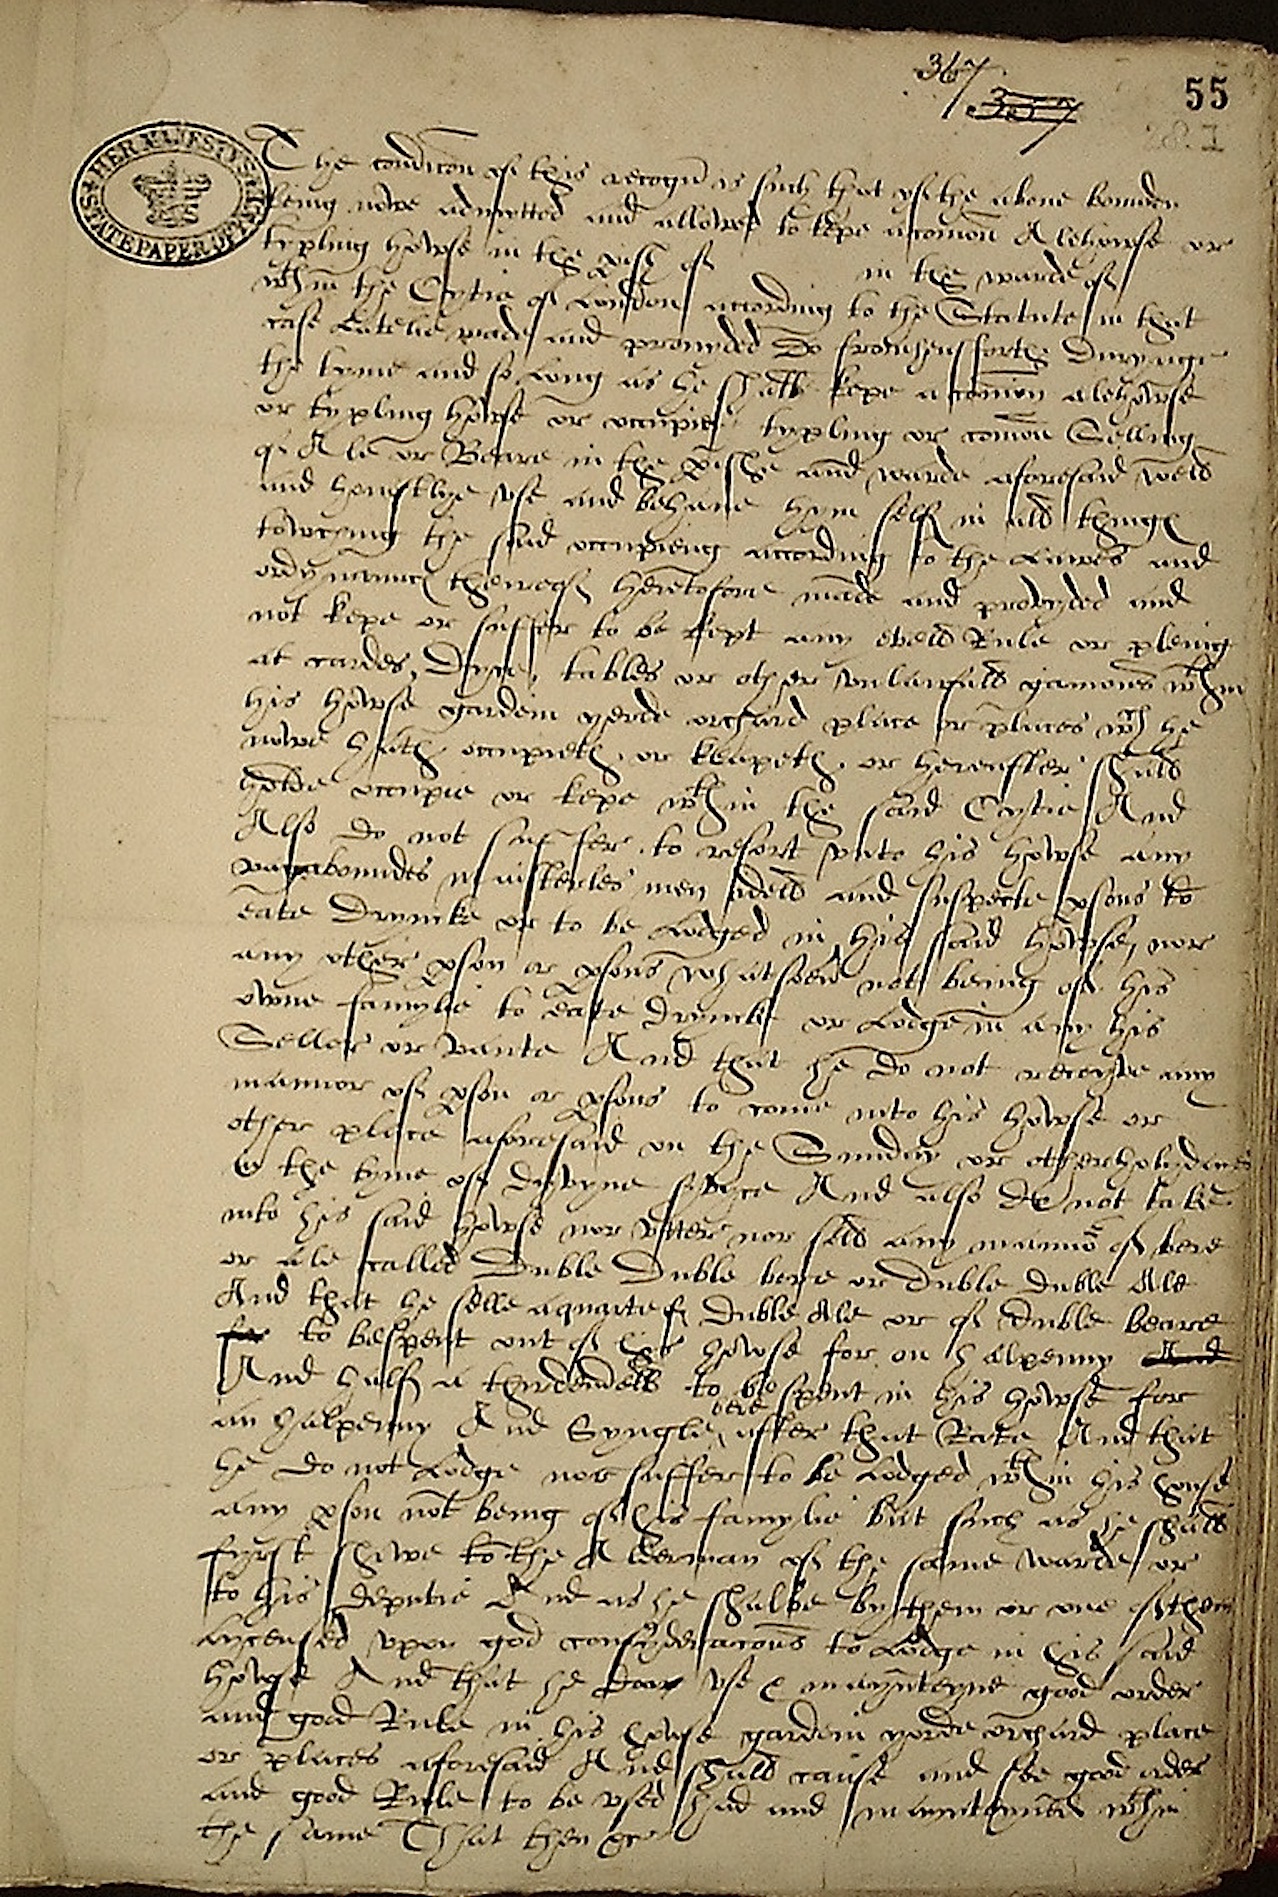 367
357
55
HER MAJESTY'S STATE PAPER OFFICE
The condicon of this recogn is such that yf the above bounden
being nowe admytted and allowed to kepe a comon Alehowse or
typling howse in the pish of in the warde of
wthin the Cytie of London according to the Statute in that
case Latelie made and provyded Do from hensforth Duryng
the tyme and so Long as he shall kepe a comon alehowse
or typling howse or occupie typling or comon Selling
of Ale or Beare in the pishe and warde aforesaid well
and honestlye vse and behave hym self in all things
towching the said occupieng according to the Lawes and
ordynannces thereof heretofore made and provyded and
not kepe or suffer to be kept any evell Rule or pleing
at cardes, Dyce, tables or other vnlawfull gamons wthin
his howse gardein yerde orchard place or places wch he
nowe hath occupieth or keapeth or hereafter shall
holde occupie or kepe wthin the said Cytie And
Also do not suffer to resort vnto his howse any
vagaboundes maisterles men Idell and suspecte psons to
eate Drynke or to be Lodged in his said howse, nor
any other pson or psons whatsoever not being of his
owne famylie to eate drynke or Lodge in any his
Seller or vaute And that he do not receyve any
mannor of pson or psons to come into his howse or
other place aforesaid on the Sunday or other holydaies
in the tyme of Devyne svyce And also do not take
into his said howse nor vtter nor sell any mannor of bere
or ale called Duble Duble bere or Duble duble Ale
And that he selle a quarte of Duble Ale or of Duble beare
for to be spent out of his howse for on halpenny And
And half a thirdendell to be spent in his howse for
an halpenny And Syngle bere after that Rate And that
he do not Lodge nor suffer to be Lodged wthin his howse
any pson not being of his famylie but such as he shall
fyrst shewe to the Alderman of the same warde or
to his deputie And as he shalbe by them or one of them
Lycensed vpon god consyderacons to Lodge in his said
howse And that he do vse & maynteyne good order
and good Rule in his howse gardein yerde orchard place
or places aforesaid And shall cause and see good order
and good Rule to be vsed had and maynteyned wthin
the same That then &c